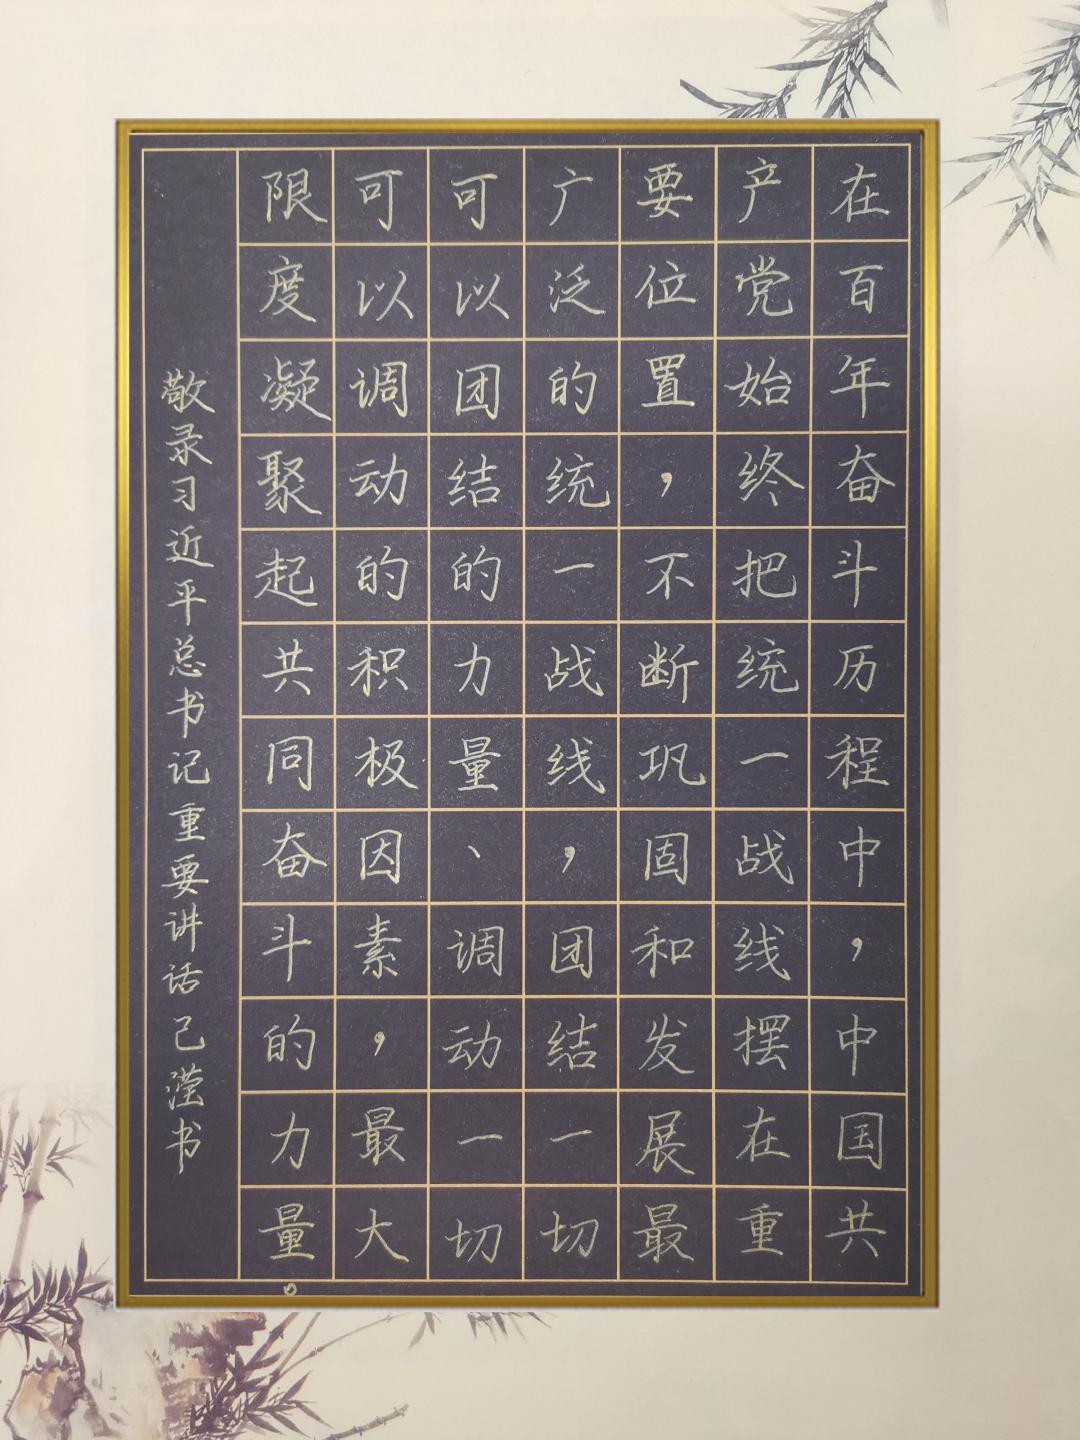 在百年奋斗历程中，中国共
产党始终把统一战线摆在重
要位置，不断巩固和发展最
广泛的统一战线，团结一切
可以团结的力量、调动一切
可以调动的积极因素，最大
限度凝聚起共同奋斗的力量。
敬录习近平总书记重要讲话己滢书